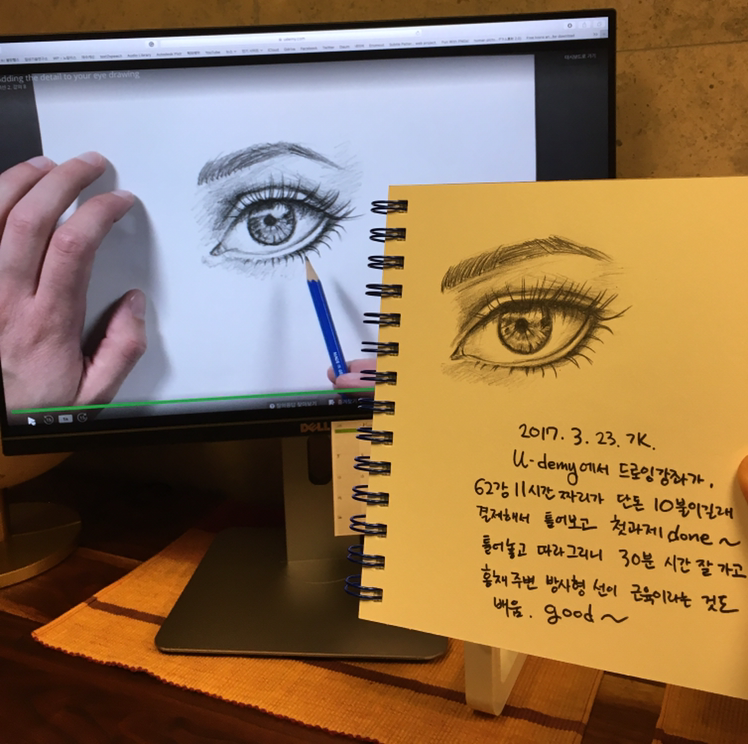 adding the detail to your eye drawing
DELL
2017. 3. 23. 7K.
U-demy에서 드로잉강좌가,
62강 11시간 짜리가 단돈 10불이길래
결제해서 틀어보고 첫과제 done~
틀어놓고 따라그리니 30분 시간 잘 가고
홍채 주변 방사형 선이 근육이라는 것도
배움. good~